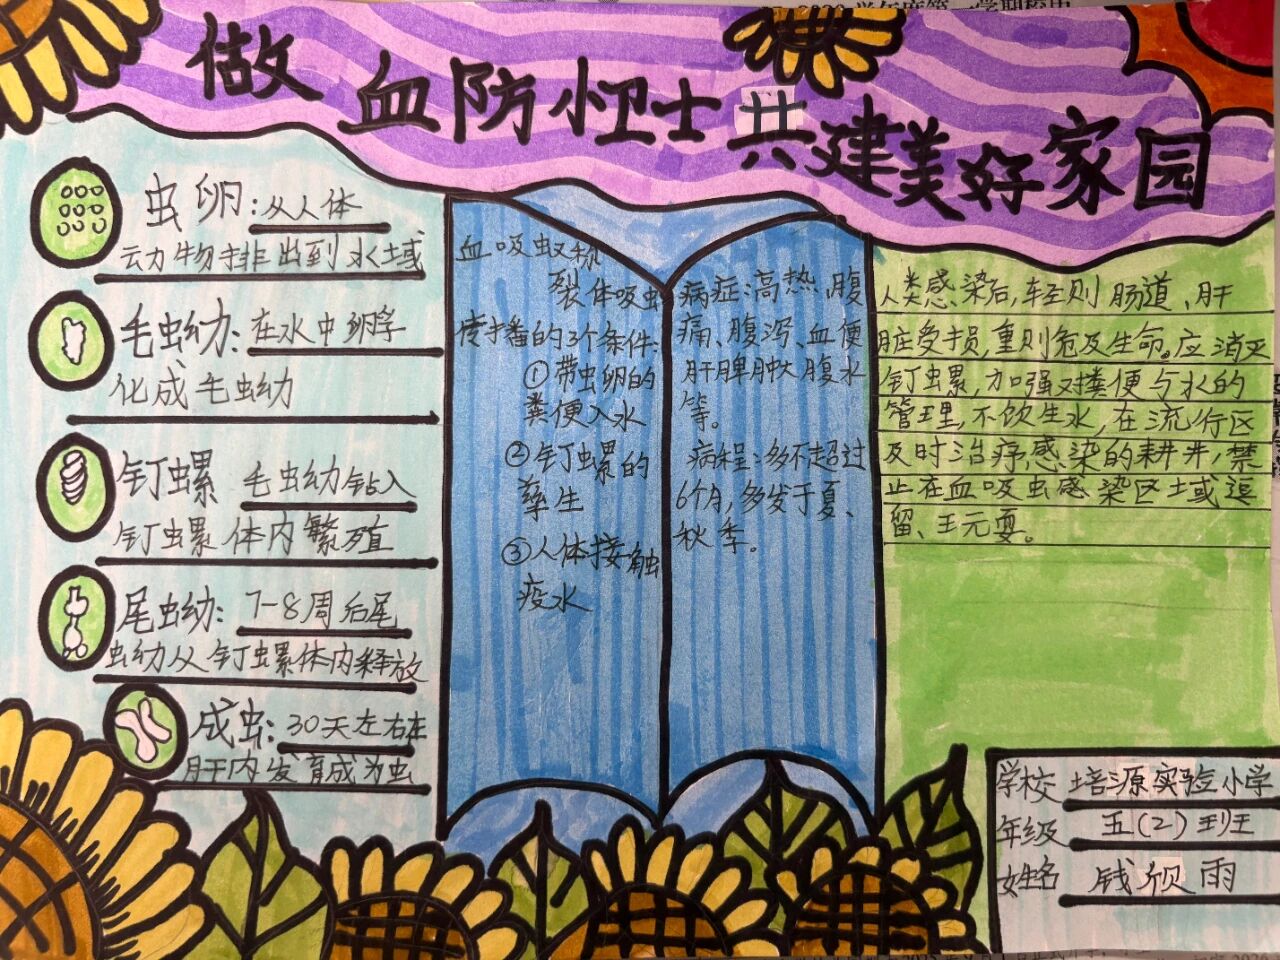 做血防小卫士共建美好家园
虫卵:从人体
动物排出到水域
毛虫幼:在水中卵孚
化成毛虫幼
钉螺 毛虫幼钻入
钉螺体内繁殖
尾虫幼:7-8周后尾
虫幼从钉螺体内释放
成虫:30天左右在
肝内发育成为虫
血吸虫又称
裂体吸虫
传播的3个条件:
①带虫卵的
粪便入水
②钉螺的
孳生
③人体接触
疫水
病症:高热、腹
痛、腹泻、血便
肝脾肿大腹水
等。
病程:多不超过
6个月,多发于夏、
秋季。
人类感染后,轻则肠道、肝
脏受损,重则危及生命。应消灭
钉螺,加强对粪便与水的
管理,不饮生水,在流行区
及时治疗感染的耕牛,禁
止在血吸虫感染区域逗
留、玩耍。
学校 培源实验小学
年级 五(2)班
姓名 钱欣雨